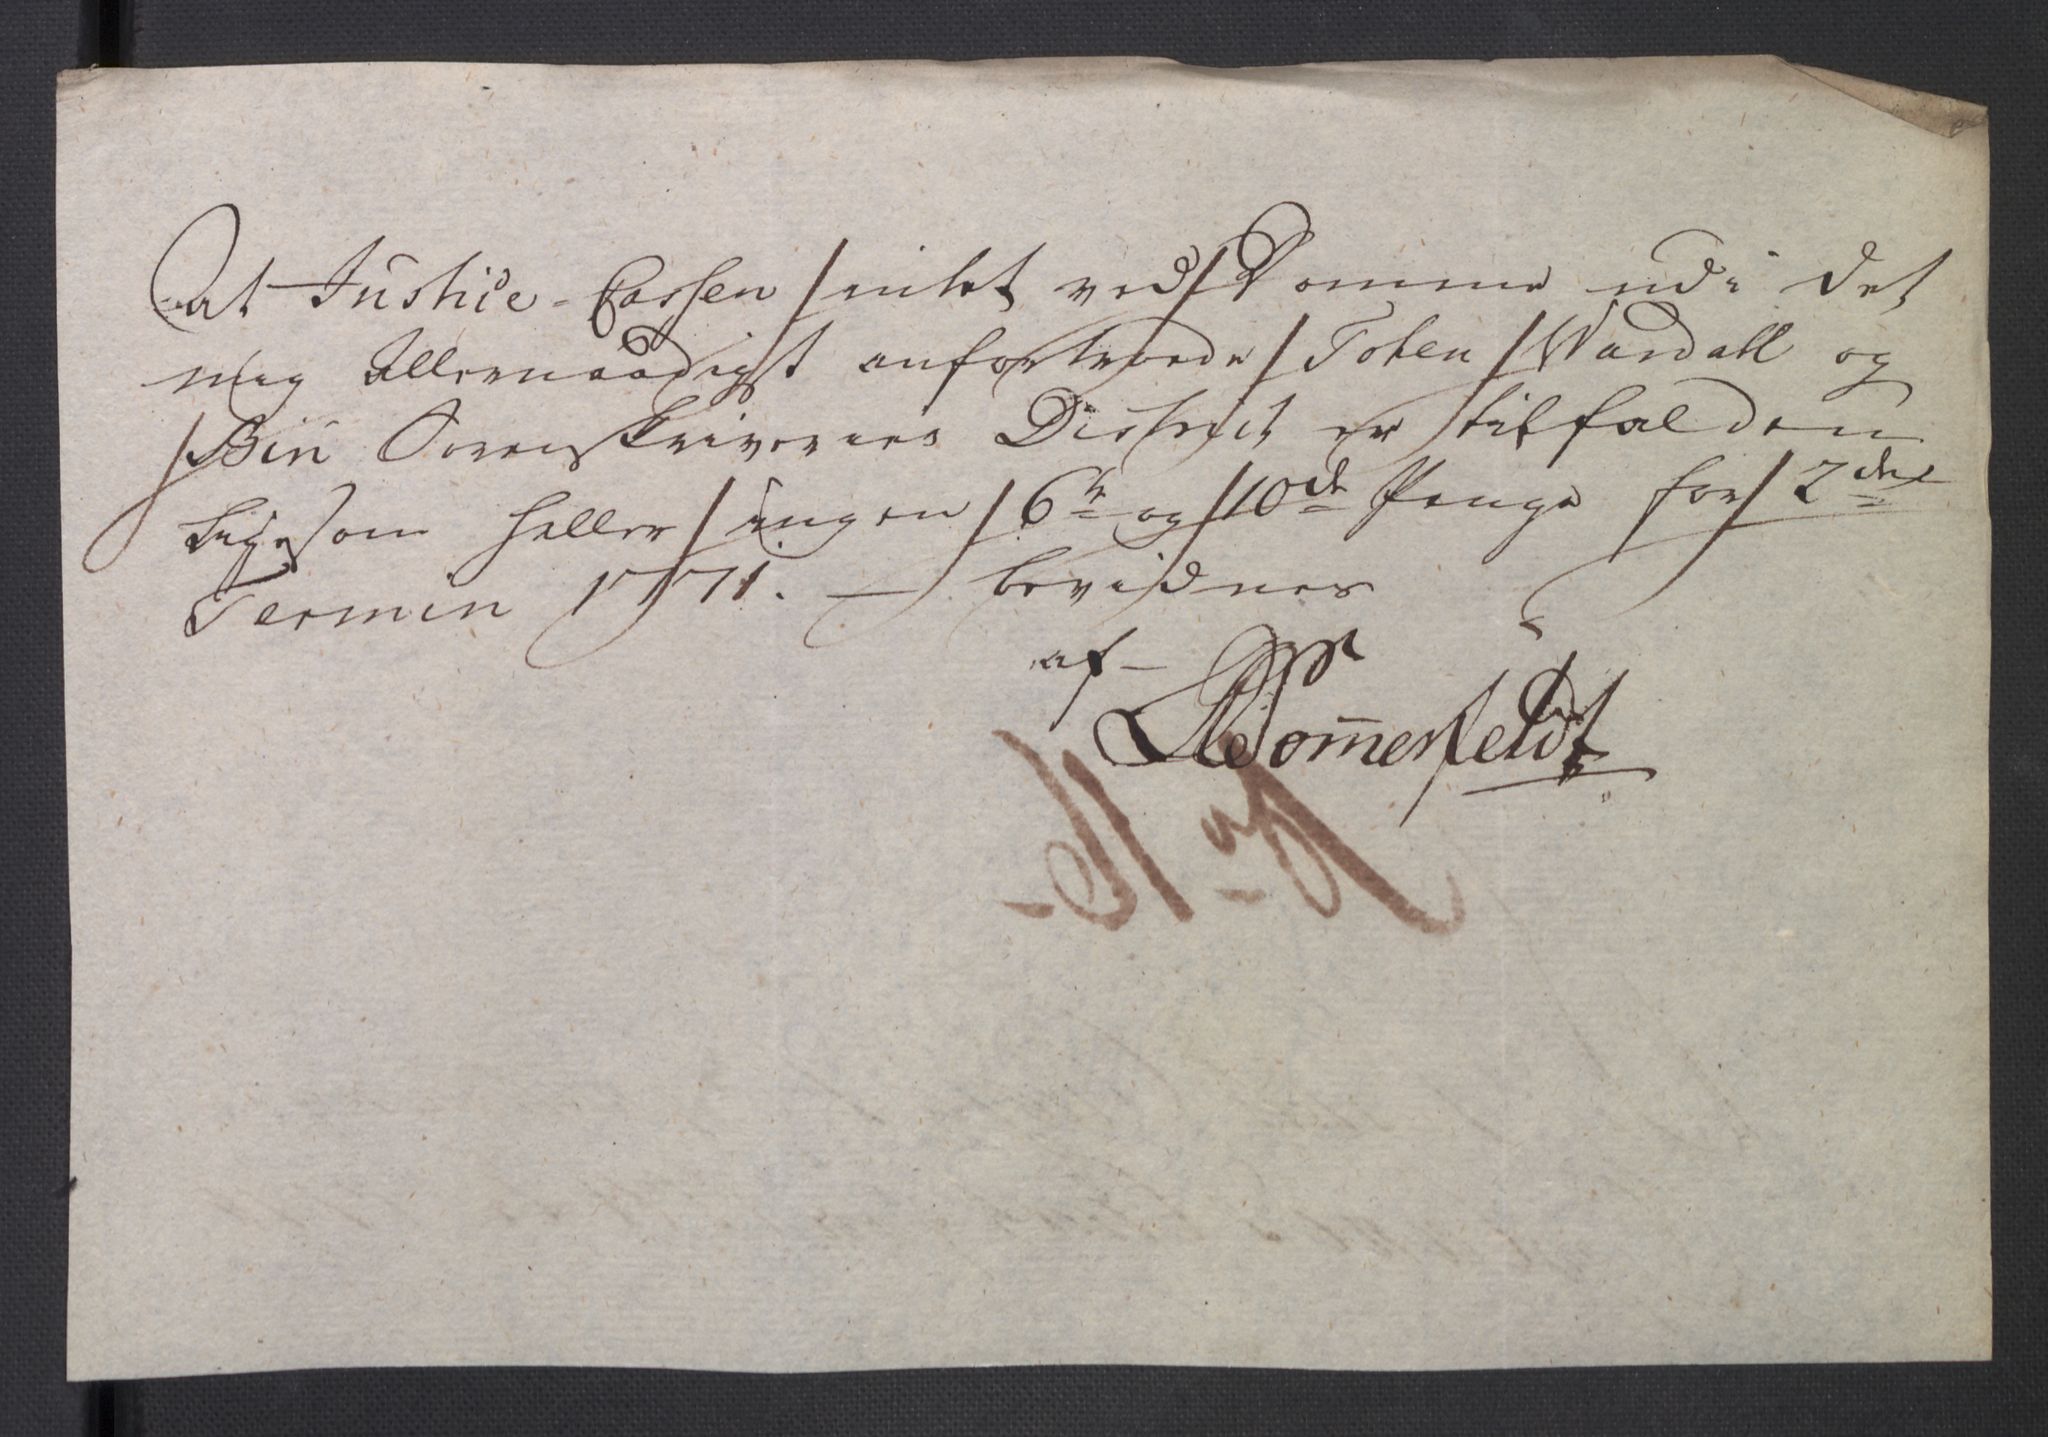 At Justice-Cassen intet ved Domme udi det
mig Allernaadigst anfortroede Toten, Wardall og
Birii Sorenskriveries District er tilfalden
ligesom heller ingen 6te og 10de Penge for 2den
Termin 1771. — bevidnes
af —
Somerfeldt